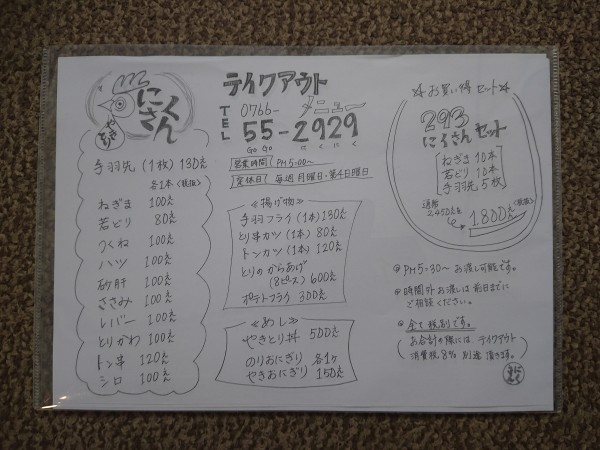 にくさん
やきとり
手羽先(1枚)130え
各1本(税抜)
ねぎま 100え
若どり 80え
つくね 100え
ハツ 100え
砂肝 100え
ささみ 100え
レバー 100え
とりかわ 100え
トン串 120え
シロ 100え
テイクアウト
メニュー
TEL 0766-
55-2929
GO GO にくにく
営業時間 PM5:00〜
定休日 毎週月曜日・第4日曜日
≪揚げ物≫
手羽フライ(1本)130え
とり串カツ(1本)80え
トンカツ(1本)120え
とりのからあげ
(8ピース)600え
ポテトフライ 300え
≪めし≫
やきとり丼 500え
のりおにぎり 各1ヶ
やきおにぎり 150え
☆お買い得セット☆
293
にくさんセット
ねぎま10本
若どり10本
手羽先5枚
通常
2,450えを
1,800え(税抜)
@PM5:30〜お渡し可能です。
@時間外お渡しは前日までに
ご相談ください。
@全て税別です。
(お会計の際には、テイクアウト
消費税8%別途頂きます。)